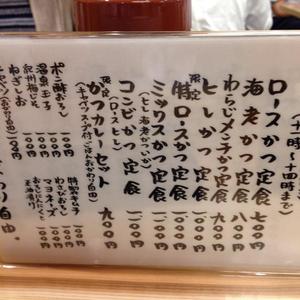 (十一時〜十四時まで)
ロースかつ定食 七〇〇円
海老かつ定食 八〇〇円
わらじメンチかつ定食 九〇〇円
ヒレかつ定食 一〇〇〇円
限定 特ロースかつ定食 一〇〇〇円
ミックスかつ定食 一〇〇〇円
(ヒレ・海老かつ・かに)
コンビかつ定食 九〇〇円
(ロース・ヒレ)
限定 かつカレーセット 九〇〇円
(キャベツ・スープ付 ごはんおかわり自由)
ポン酢おろし 一〇〇円
温泉玉子 一〇〇円
紀州梅じそ 一〇〇円
ねぎしお 一〇〇円
特製キムチ 一〇〇円
わさびおろし 一〇〇円
マヨネーズ
おろしにんにく
自由。